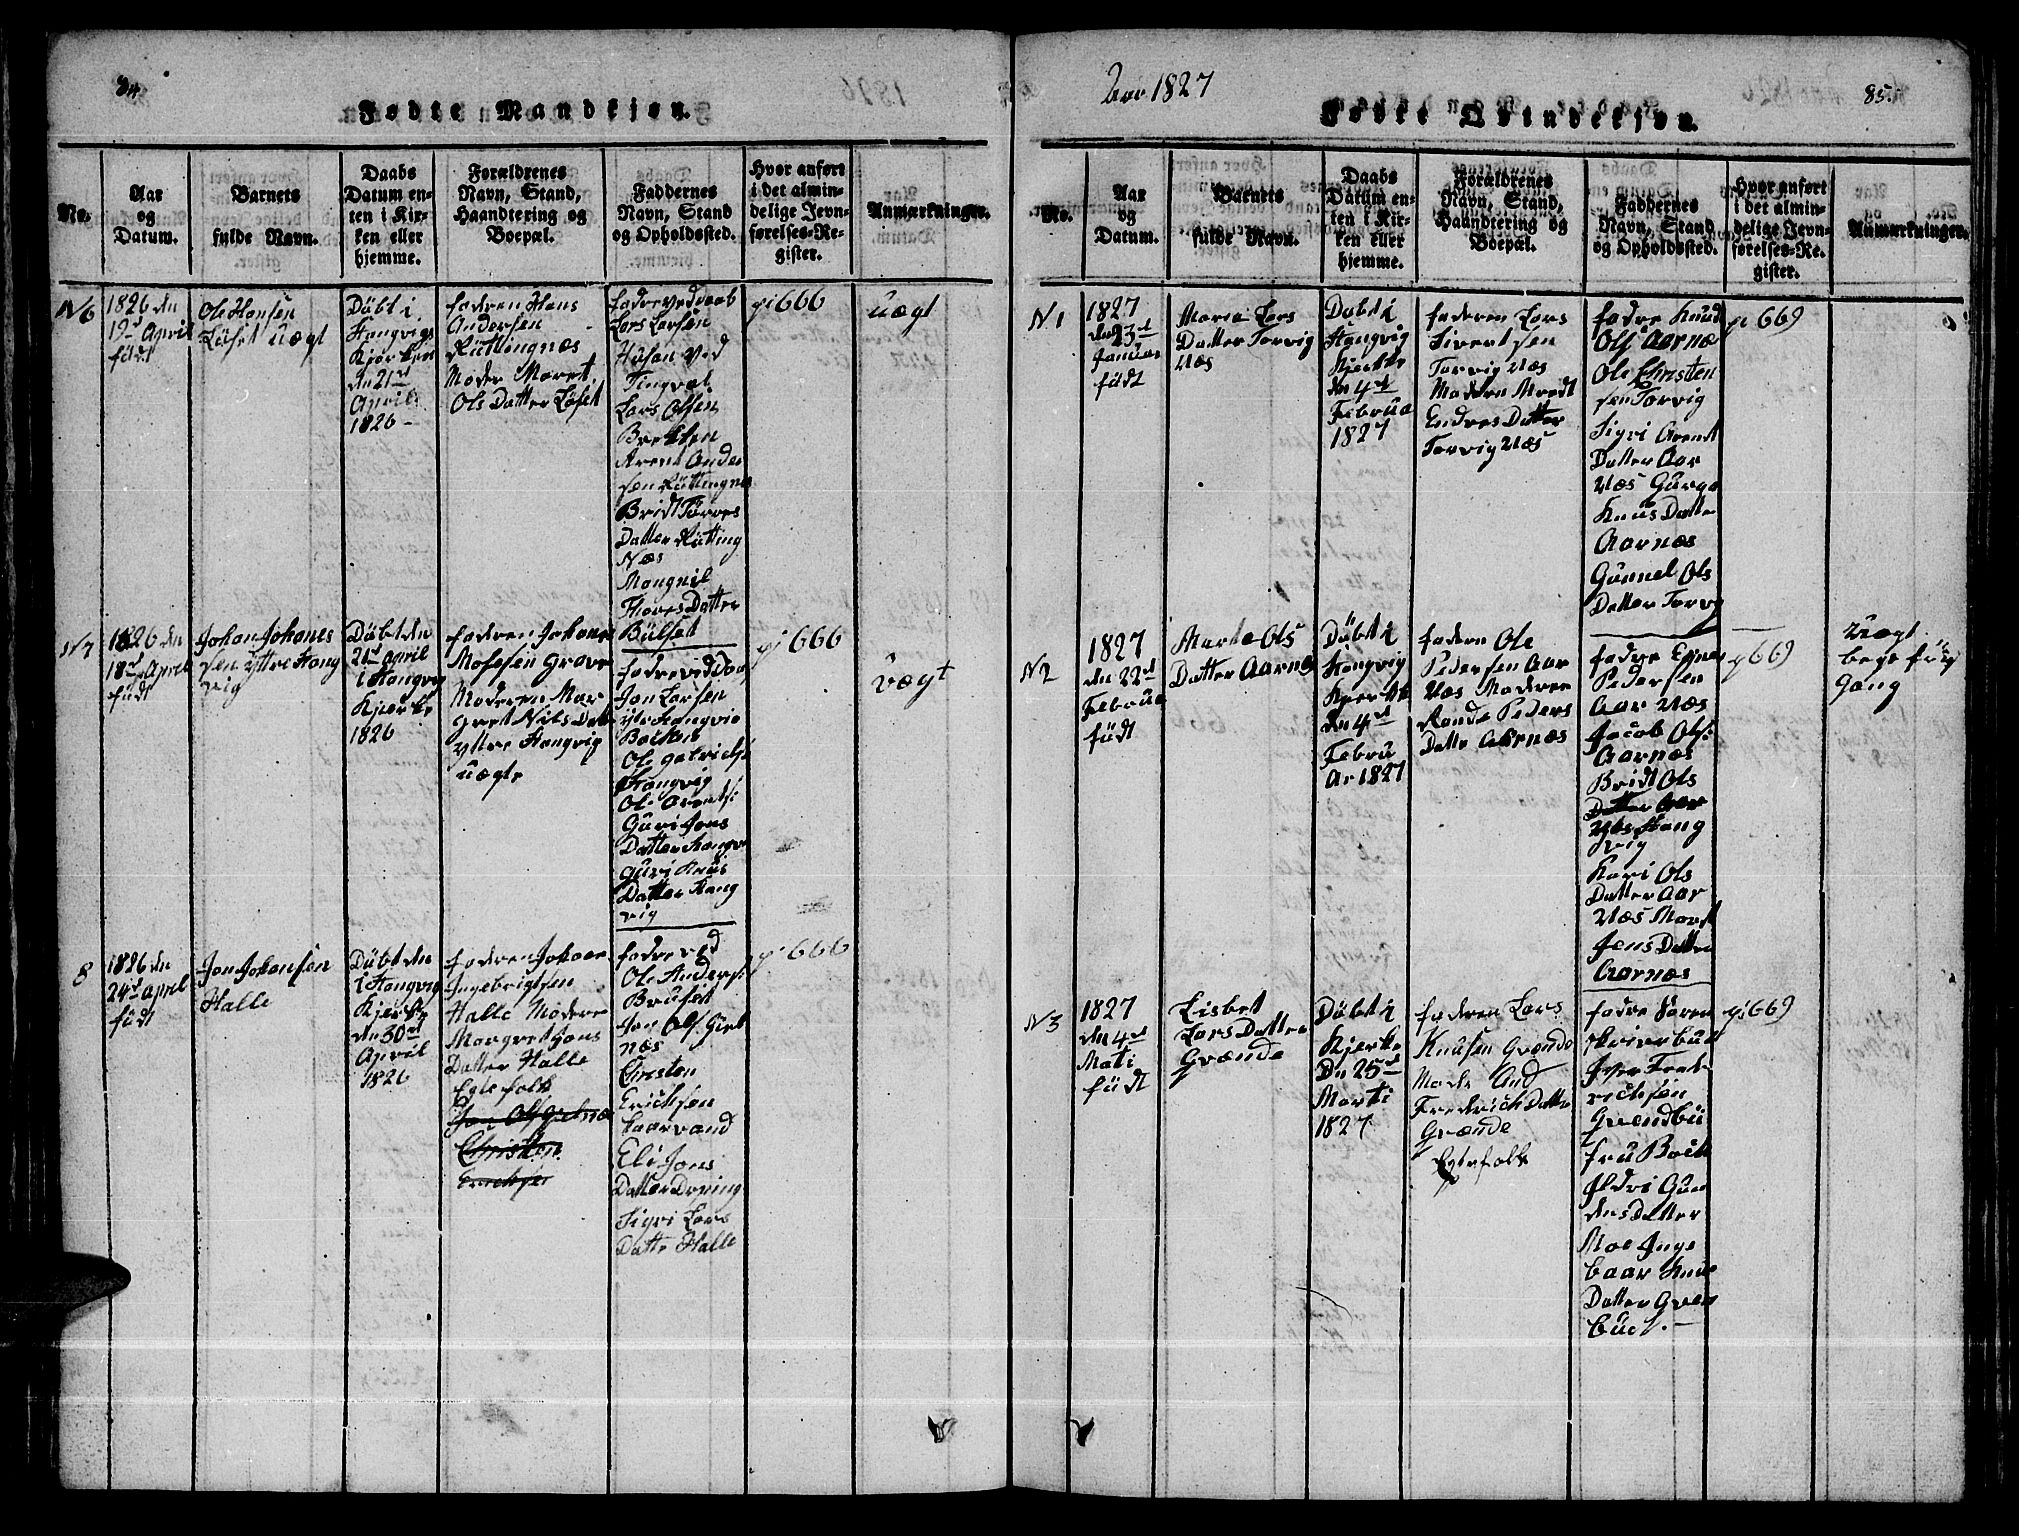 84.
Fødte Mandkjøn.
No.
Aar
og
Datum.
Barnets
fulde Navn.
Daabs
Datum en-
ten i Kir-
ken eller
hjemme.
Forældrenes
Navn, Stand,
Haandtering og
Boepæl.
Faddernes
Navn, Stand
og Opholdssted.
Hvor anført
i det almin-
delige Jevn-
førelses-Re-
gister.
Anmærkninger.
N 6
1826 den
19d April
født
Ole Hansen
Løset uægt
Døbt i
Stangvigs
Kjerken
den 21d
April
1826 -
fadren Hans
Andersen
Røttingnæs
Moder Maret
Ols Datter Løset
fadre ved daab
Lars Larsen
Husen ved
Tingvol
Lars Olsen
Brekken
Arent Ander
sen Røttingnes
Bridt Tores
Datter Røtting
Næs
Mangnil
Thores Datter
Bølset
pi 666
uægt
N 7
1826 den
18d April
født
Johan Johanes
sen yttre Stang
vig
Døbt den
21d April
i Stangvig
Kjerke
1826
fadren Johanes
Mosesen
Moderen Mar
gret Nils Datte
yttre Stangvig
uægte
fadre ved Daab
Jon Larsen
ytre Stangvig
Bakken
Ole
Stangvig
Ole Arents:
Guri Jons
Datter Stangv
guri Knus
Datter Stang
vig
pi 666
uægt
8
1826 den
24d April
født
Jon Johansen
Halle
Døbt den
i Stangvig
Kjerke
den 30d
April
1826
fadren Johan
Ingebrigtsen
Halle Modere
Margret Jons
Datter Halle
Egtefolk
Jon Ols Gjelnæs
Christen
Ericksen
fadre ved
Ole Anders:
Bruset
Jon Ols: Giel
næs
Christen
Ericksen
Saarvand
Eli Jons
Datter Drøning
Sigri Lars
Datte Halle
pi 666
Aar 1827
85.
Fødte Qvindekjøn.
No.
Aar
og
Datum.
Barnets
fulde Navn.
Daabs
Datum en-
ten i Kir-
ken eller
hjemme.
Forældrenes
Navn, Stand,
Haandtering og
Boepæl.
Faddernes
Navn, Stand
og Opholdssted.
Hvor anført
i det almin-
delige Jevn-
førelses-Re-
gister.
Anmærkninger.
N 1
1827
den 23d
Januar
født
Maria Lars
Datter Torvig
Næs
Døbt i
Stangvig
Kjerke
den 4d
Februa
1827
faderen Lars
Sivertsen
Torvig Næs
Modern Mredt
Endres Datter
Torvig Næs
fadre Knud
Ols: Aarnæs
Ole Christen
sen Torvig
Sigri Arent
Datter Aar
Næs Gurga
Knus Datte
Aarnæs
Gunnel Ols
Datter Torvig
pi 669
N 2
1827
den 22d
Februa
født
Marte Ols
Datter Aarnæs
Døbt i
Stangvig
Kjerke
den 4d
Febru
Ar 1827
fadren Ole
Pedersen Aar
Næs Modere
Rande Peders
Datte Aarnæs
fadre
Pedersen
Aar Næs
Jacob Ols:
Aarnæs
Bridt Ols
Datter Aar
Næs Stang
vig
Kari Ols
Datter Aar
Næs Maret
Jens Datte
Aarnæs
pi 669
Uægt
bege
Gang
N 3
1827
den 4d
Mati
født
Lisbet
Lars Datter
Grænde
Døbt i
Kjerke
Den 25d
Marti
1827
fadren Lars
Knusen Grænde
Mode And
Frederich Datte
Grænde
Egtefolk
fadre Søren
skriverbue
Iver Frede
richsen
Grendbu
fru Boek
Ildri Gun
ders Datter
Moe Inge
baar Knus
Datter Gren
bue.-
pi 669